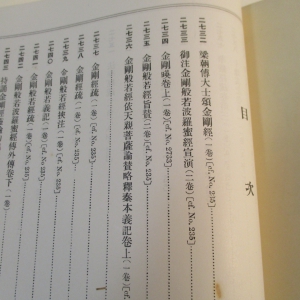 目次
二七三二 梁朝傅大士頌金剛經(一卷)〔cf. No. 235〕
二七三三 御注金剛般若波羅蜜經宣演(二卷)〔cf. No. 235〕
二七三四 金剛暎卷上(一卷)〔cf. No. 2733〕
二七三五 金剛般若經旨贊(二卷)〔cf. No. 235〕
二七三六 金剛般若經依天親菩薩論贊略釋秦本義記卷上(一卷)
二七三七 金剛經疏(一卷)〔cf. No. 235〕
二七三八 金剛經疏(一卷)〔cf. No. 235〕
二七三九 金剛般若經挾註(一卷)〔cf. No. 235〕
二七四〇 金剛般若義記(一卷)〔cf. No. 235〕
二七四一 金剛般若經疏(一卷)〔cf. No. 235〕
二七四二 金剛般若經疏